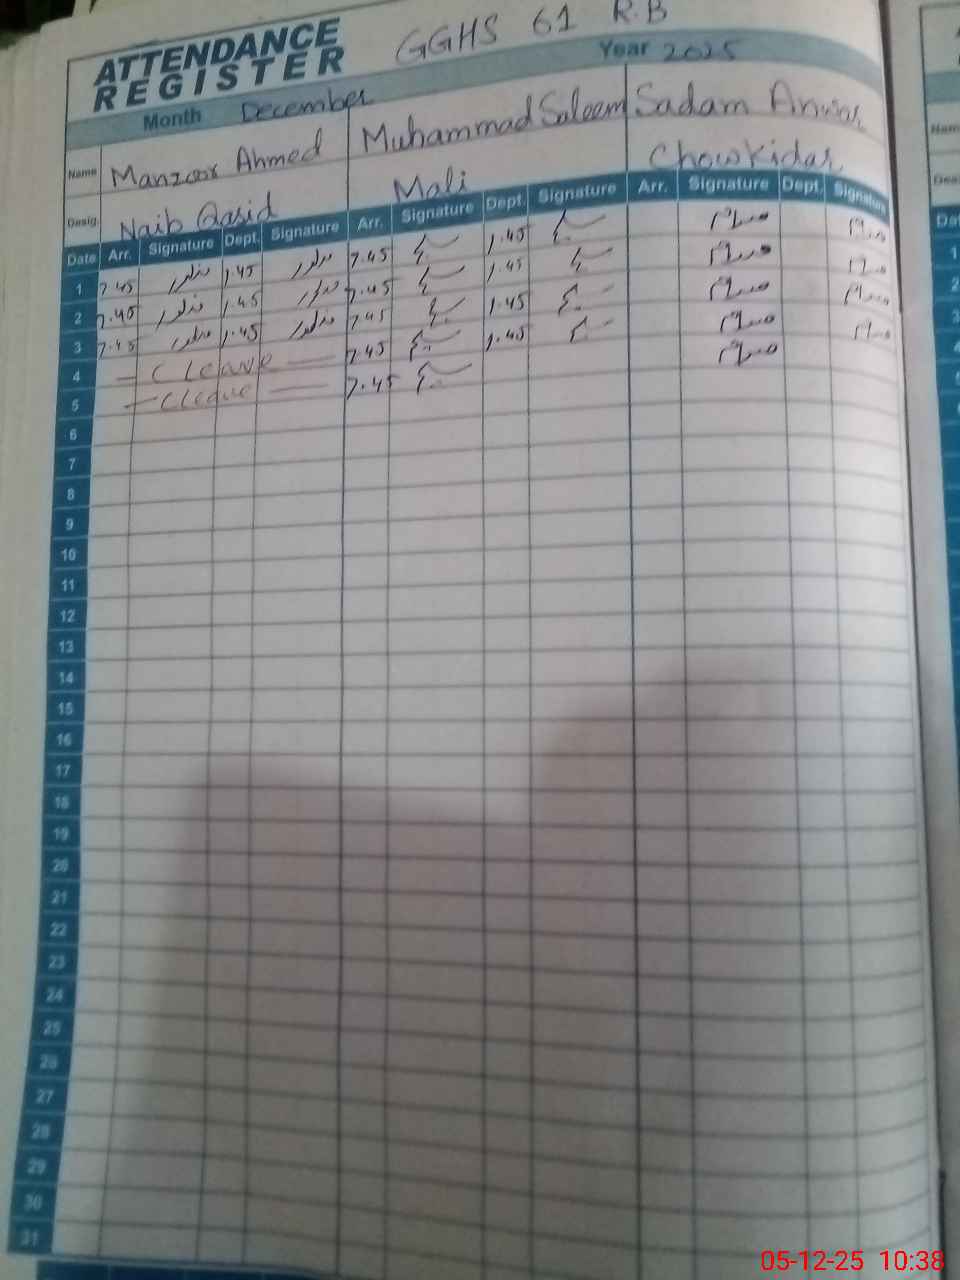 ATTENDANCE REGISTER GGHS 61 R.B
Month December Year 2025
Name Manzoor Ahmed Muhammad Saleem Sadam Anwar
Desig. Naib Qasid Mali Chowkidar
Date Arr. Signature Dept. Signature Arr. Signature Dept. Signature Arr. Signature Dept. Signature
1 7.45 منظور 1.45 منظور 7.45 1.45
2 7.45 منظور 1.45 منظور 7.45 1.45
3 7.45 منظور 1.45 منظور 7.45 1.45
4 — C leave — 7.45 1.45
5 — C leave — 7.45
6
7
8
9
10
11
12
13
14
15
16
17
18
19
20
21
22
23
24
25
26
27
28
29
30
31
05-12-25 10:38